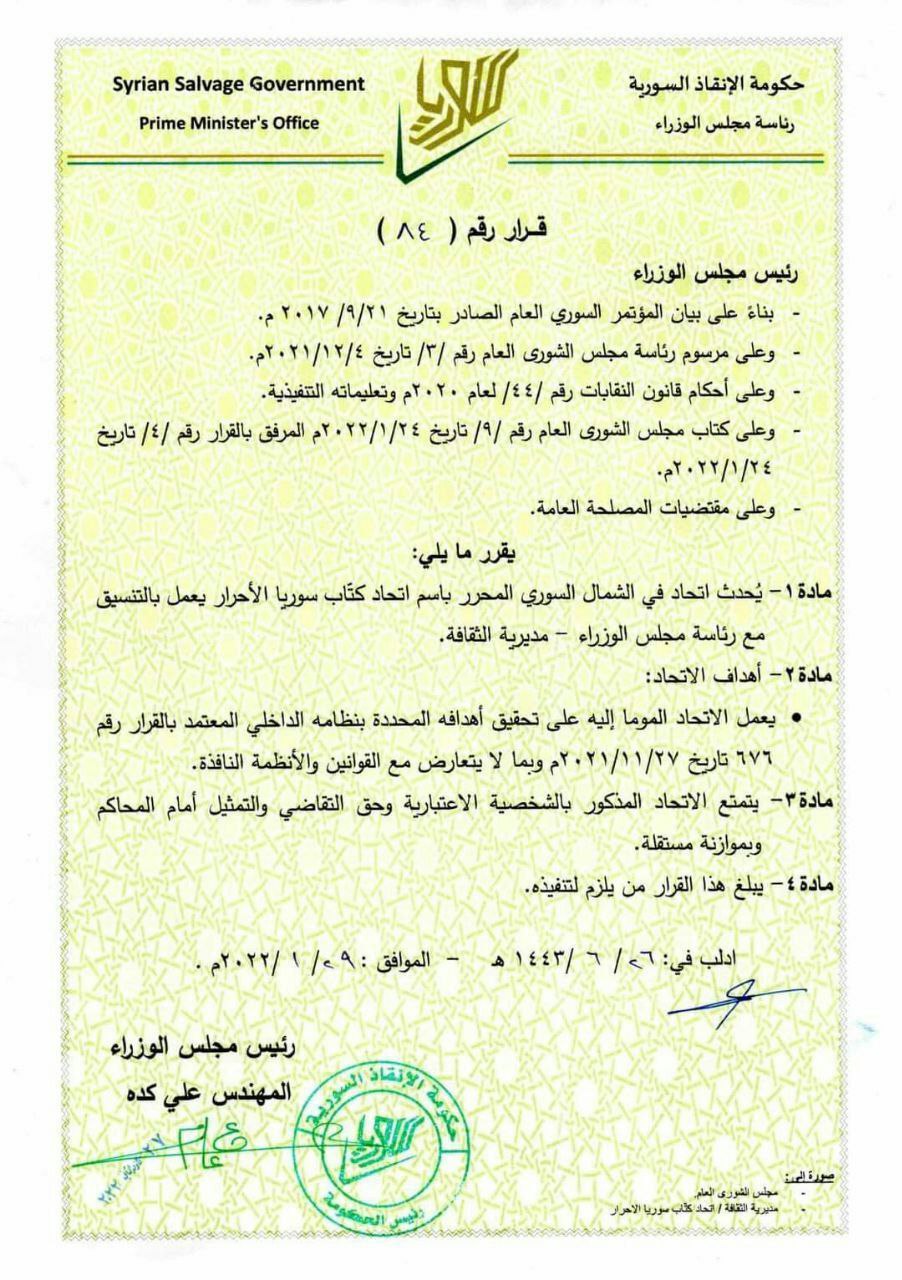 Syrian Salvage Government
Prime Minister's Office
حكومة الإنقاذ السورية
رئاسة مجلس الوزراء
سوريا
قـرار رقم ( ٨٤ )
رئيس مجلس الوزراء
- بناءً على بيان المؤتمر السوري العام الصادر بتاريخ ٩/٢١/ ٢٠١٧ م.
- وعلى مرسوم رئاسة مجلس الشورى العام رقم /٣/ تاريخ ٢٠٢١/١٢/٤م.
- وعلى أحكام قانون النقابات رقم /٤٤/ لعام ٢٠٢٠م وتعليماته التنفيذية.
- وعلى كتاب مجلس الشورى العام رقم /٩/ تاريخ ٢٠٢٢/١/٢٤م المرفق بالقرار رقم /٤/ تاريخ
٢٠٢٢/١/٢٤م.
- وعلى مقتضيات المصلحة العامة.
يقرر ما يلي:
مادة١- يُحدث اتحاد في الشمال السوري المحرر باسم اتحاد كتّاب سوريا الأحرار يعمل بالتنسيق
مع رئاسة مجلس الوزراء – مديرية الثقافة.
مادة٢- أهداف الاتحاد:
• يعمل الاتحاد الموما إليه على تحقيق أهدافه المحددة بنظامه الداخلي المعتمد بالقرار رقم
٦٧٦ تاريخ ٢٠٢١/١١/٢٧م وبما لا يتعارض مع القوانين والأنظمة النافذة.
مادة٣- يتمتع الاتحاد المذكور بالشخصية الاعتبارية وحق التقاضي والتمثيل أمام المحاكم
وبموازنة مستقلة.
مادة٤- يبلغ هذا القرار من يلزم لتنفيذه.
ادلب في: ٢٦/ ٦ /١٤٤٣ هـ – الموافق : ٢٩/ ١ /٢٠٢٢م .
رئيس مجلس الوزراء
المهندس علي كده
حكومة الإنقاذ السورية
سوريا
رئيس الحكومة
صورة إلى:
- مجلس الشورى العام.
- مديرية الثقافة / اتحاد كتّاب سوريا الاحرار